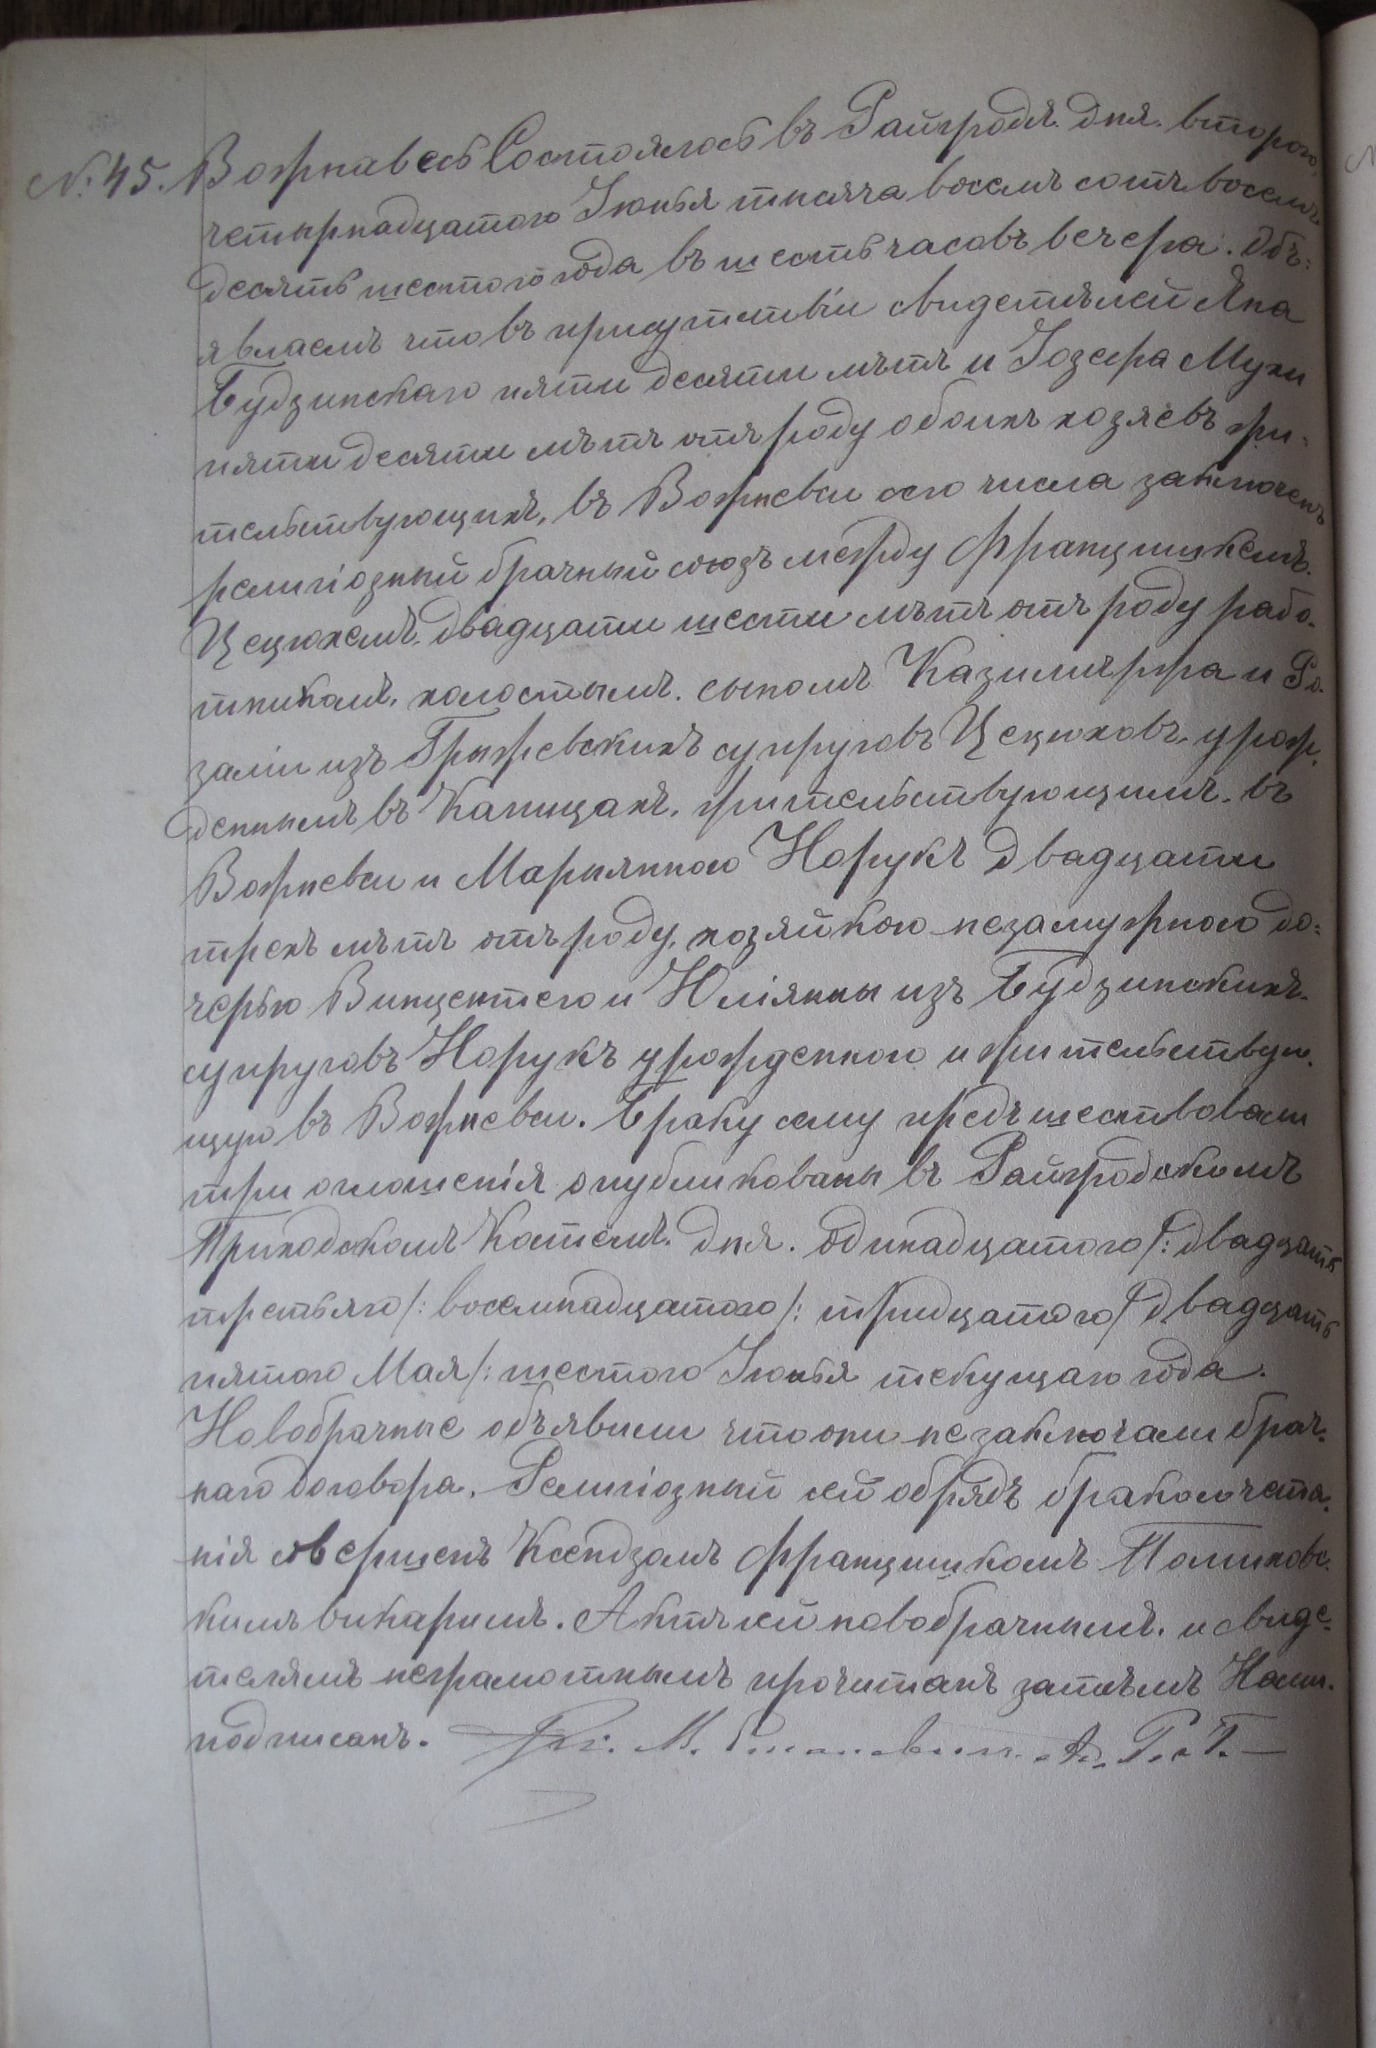 № 45. Вожнавесь Состоялось въ Райгродѣ дня второго
четырнадцатого Іюнья тысяча восемъ сотъ восемъ
десятъ шестого года въ шесть часовъ вечера. Объ-
явлаемъ что въ присутствіи свидетѣлей Яна
Будзинскаго пяти десяти лѣтъ и Іозефа Мухи
пяти десяти лѣтъ отъ роду обоихъ хозяевъ жи-
тельствующихъ, въ Вожневси сего числа заключенъ
религіозный брачный союзъ между Францишкемъ
Цецюхемъ двадцати шести лѣтъ отъ роду рабо-
тникомъ, холостымъ, сыномъ Казимирра и Ро-
заліи изъ Грыжевскихъ супруговъ Цецюховъ, урож-
деннымъ въ Капицахъ, жительствующимъ, въ
Вожневси и Марыянною Норукъ двадцати
трехъ лѣтъ отъ роду, хозяйкою незамужною до-
черью Винцентего и Юліянны изъ Будзинскихъ
супруговъ Норукъ урожденною и жительствую-
щую въ Вожневси. Браку сему предъшествовали
три оглошенія опубликованы въ Райгродскомъ
Приходскомъ Костелѣ. дня. одинадцатого /: двадцать
третьяго /: восемнадцатого /: тридцатого / двадцать
пятого Мая /: шестого Іюнья текущаго года.
Новобрачные объявили что они незаключали брач-
наго договора. Религіозный сей обрядъ бракосочета-
нія совершенъ Ксендзомъ Францишкомъ Полиховс-
кимъ викаримъ. Актъ сей новобрачнымъ и свиде-
телямъ неграмотнымъ прочитанъ затѣмъ Нами
подписанъ. М.